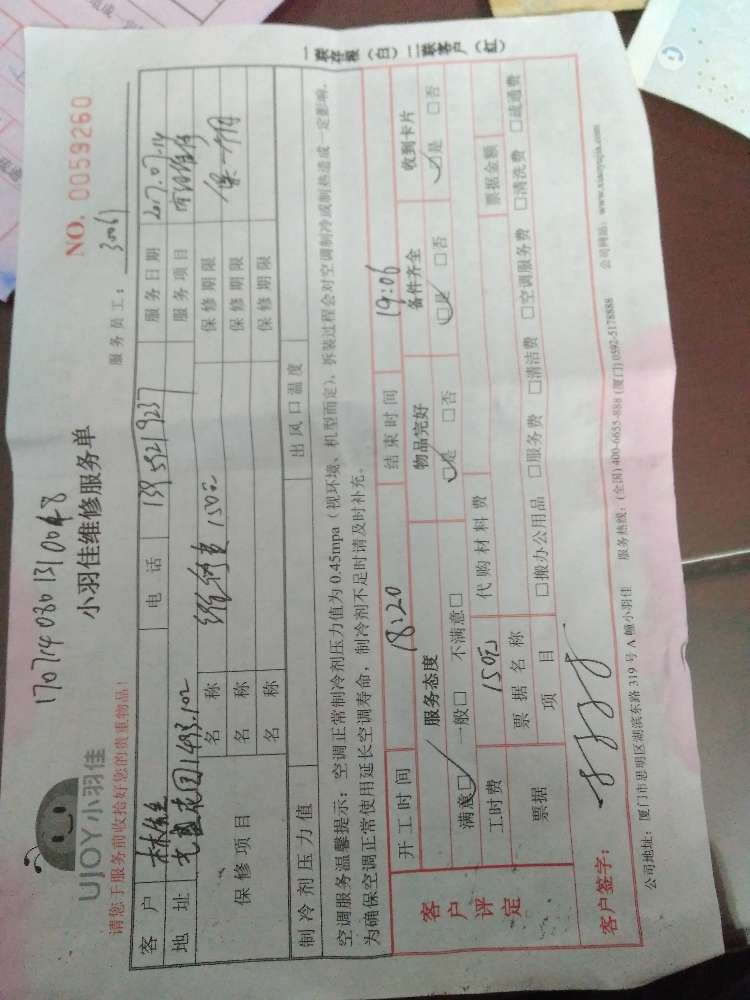 1707140801310048
UJOY小羽佳
小羽佳维修服务单
NO. 0059260
请您于服务前收拾好您的贵重物品！
服务员工：
客户 电话 服务日期
地址 服务项目
保修项目 名称 维修费 150元 保修期限 保一个月
名称 保修期限
名称 保修期限
制冷剂压力值 出风口温度
空调服务温馨提示：空调正常制冷剂压力值为 0.45mpa（视环境、机型而定），拆装过程会对空调制冷或制热造成一定影响，
为确保空调正常使用延长空调寿命，制冷剂不足时请及时补充。
开工时间 18:20 结束时间 19:06
客户评定 服务态度 物品完好 备件齐全 收到卡片
满意□ 一般□ 不满意□ □是 □否 □是 □否 □是 □否
工时费 150元 代购材料费
票据 票据名称 票据金额
项目 □搬办公用品 □服务费 □清洁费 □空调服务费 □清洗费 □疏通费
客户签字：
公司地址：厦门市思明区湖滨东路 319 号 A 幢小羽佳 服务热线：(全国) 400-6655-888 (厦门) 0592-5178888 公司网站：www.xiaoyujia.com
一联存根（白）二联客户（红）